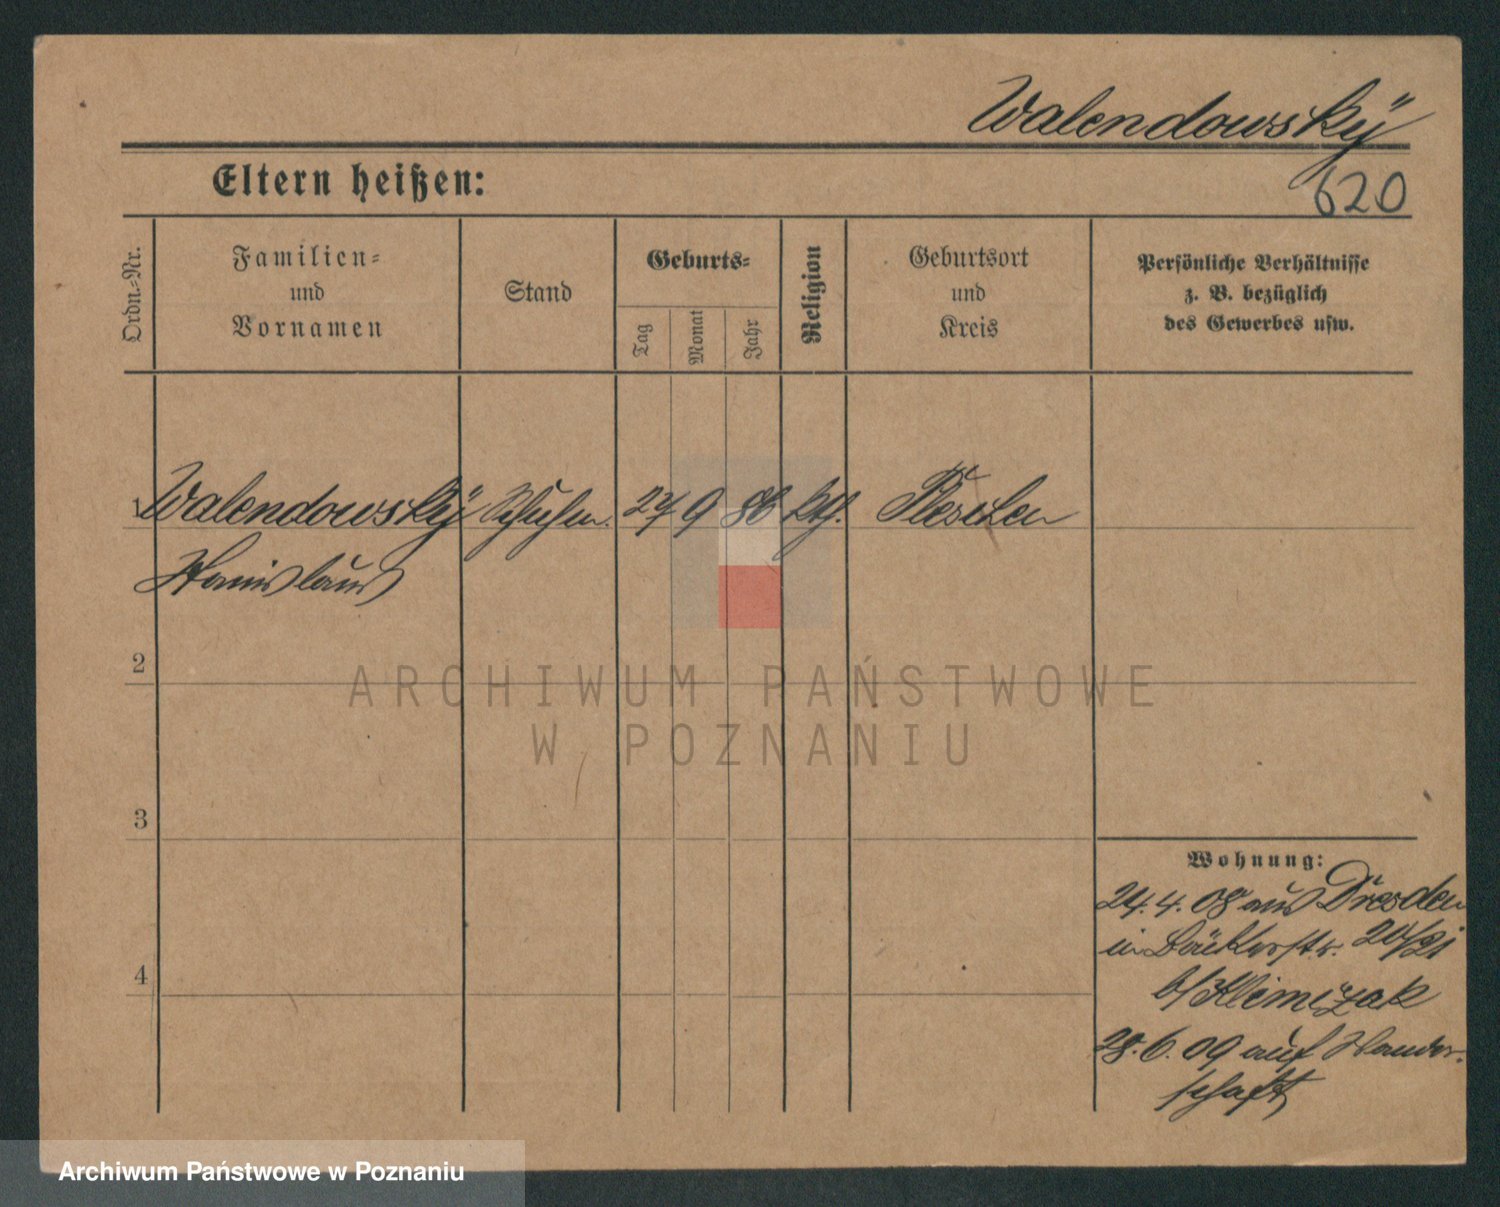 Walendowský
620
Eltern heißen:
Ordn.-Nr.
Familien-
und
Vornamen
Stand
Geburts-
Tag
Monat
Jahr
Religion
Geburtsort
und
Kreis
Persönliche Verhältnisse
z. B. bezüglich
des Gewerbes usw.
1 Walendowský 27 9 86 kth. Pleschen
Stanislaus
2
ARCHIWUM PAŃSTWOWE
W POZNANIU
3
Wohnung:
24.4.08 aus Dresden
in Bäckerstr. 20/21
b/Klimczak
4
28.6.09 auf Wander-
schaft
Archiwum Państwowe w Poznaniu